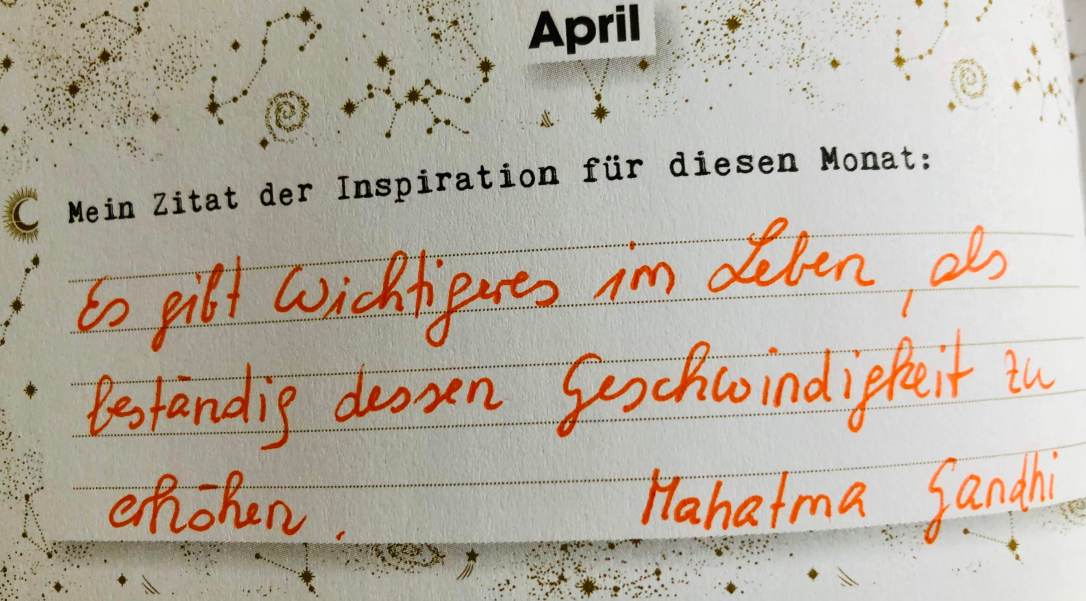 April
Mein Zitat der Inspiration für diesen Monat:
Es gibt Wichtigeres im Leben, als
beständig dessen Geschwindigkeit zu
erhöhen.
Mahatma Gandhi